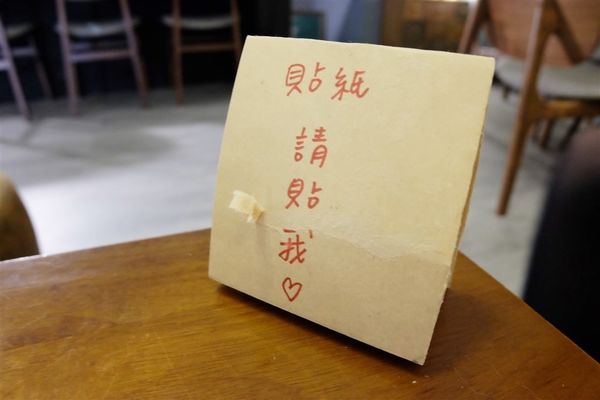 貼紙
請
貼
我♡